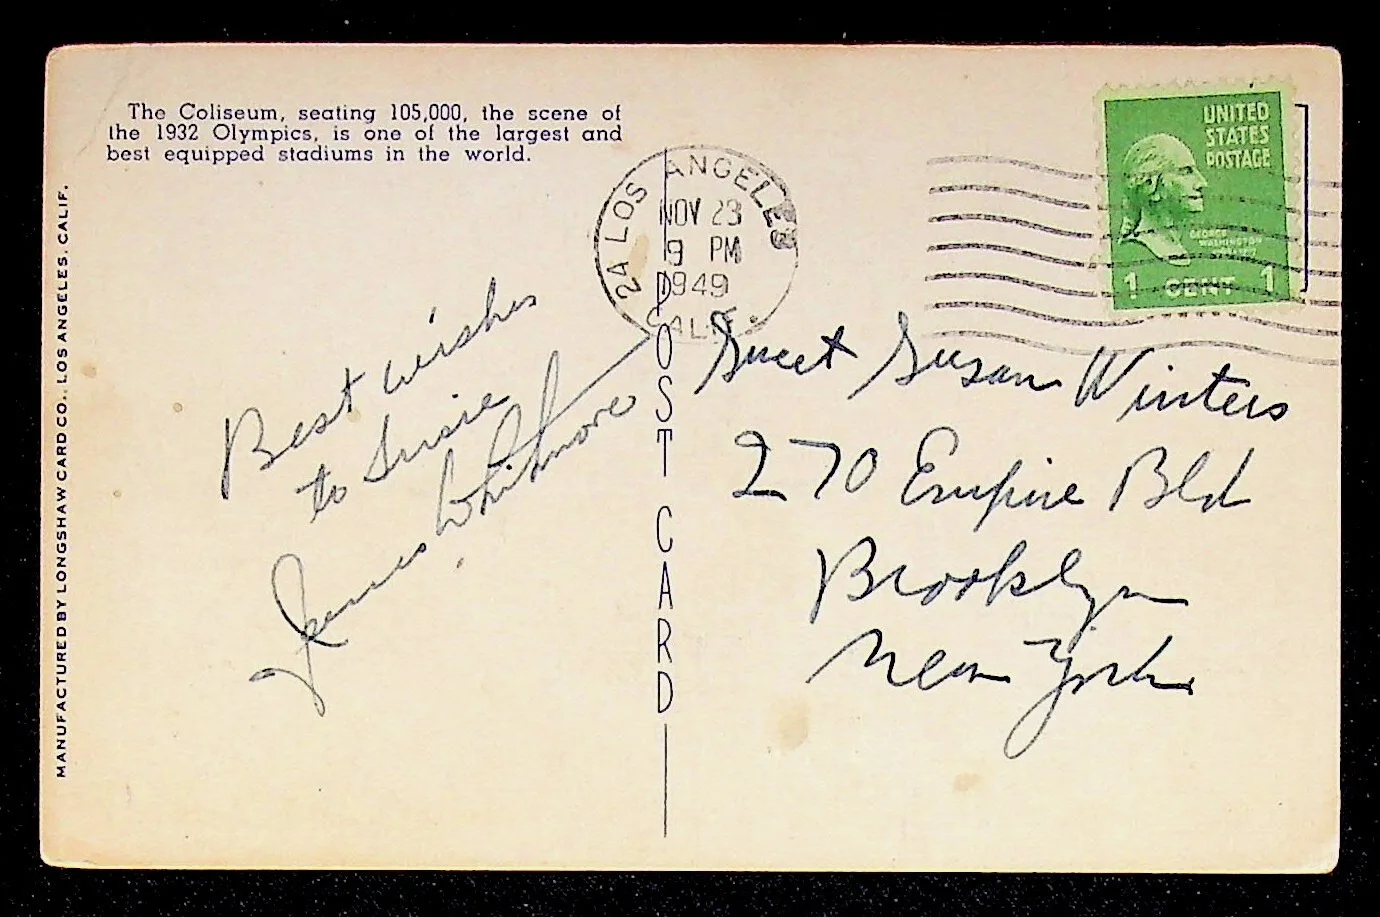 The Coliseum, seating 105,000, the scene of
the 1932 Olympics, is one of the largest and
best equipped stadiums in the world.
MANUFACTURED BY LONGSHAW CARD CO., LOS ANGELES, CALIF.
LOS ANGELES
NOV 23
9 PM
1949
CALIF.
UNITED
STATES
POSTAGE
GEORGE
WASHINGTON
1 CENT 1
Best wishes
to Susie
James Whitmore
POST CARD
Sweet Susan Winters
270 Empire Bld
Brooklyn
New York